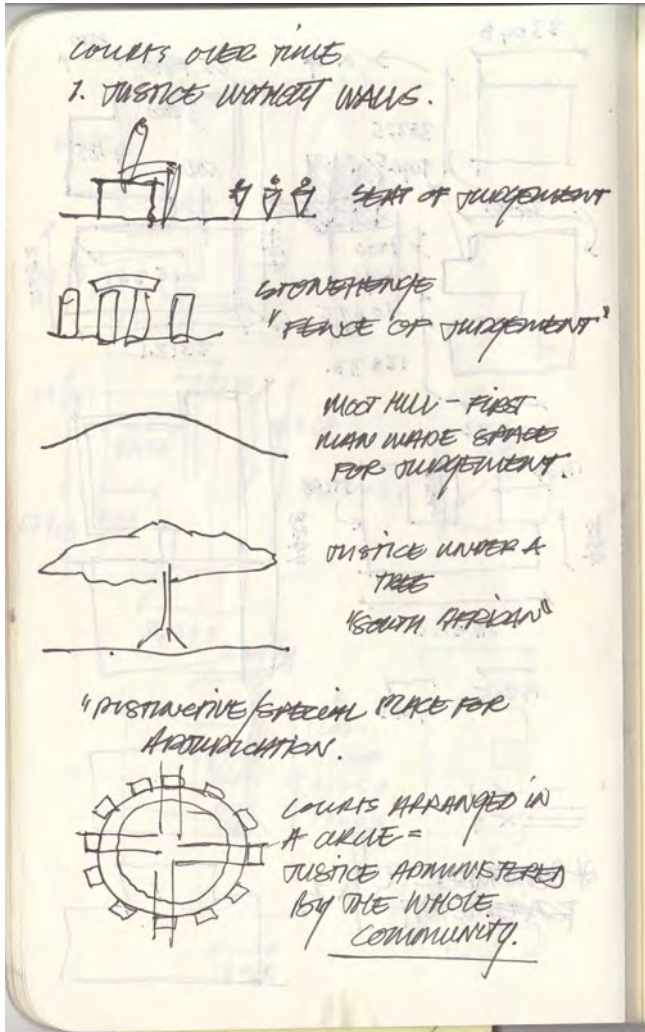 COURTS OVER TIME.
1. JUSTICE WITHOUT WALLS.
SEAT OF JUDGEMENT
STONEHENGE
"FENCE OF JUDGEMENT"
MOOT HILL - FIRST
MAN MADE SPACE
FOR JUDGEMENT.
JUSTICE UNDER A
TREE
"SOUTH AFRICAN"
"DISTINCTIVE/SPECIAL PLACE FOR
ADJUDICATION.
COURTS ARRANGED IN
A CIRCLE =
JUSTICE ADMINISTERED
BY THE WHOLE
COMMUNITY.